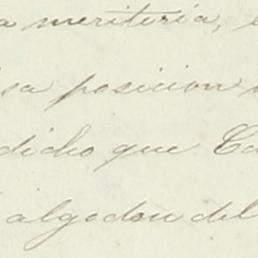 a meritoria,
sa posicion
dicho que Ca
algodon del